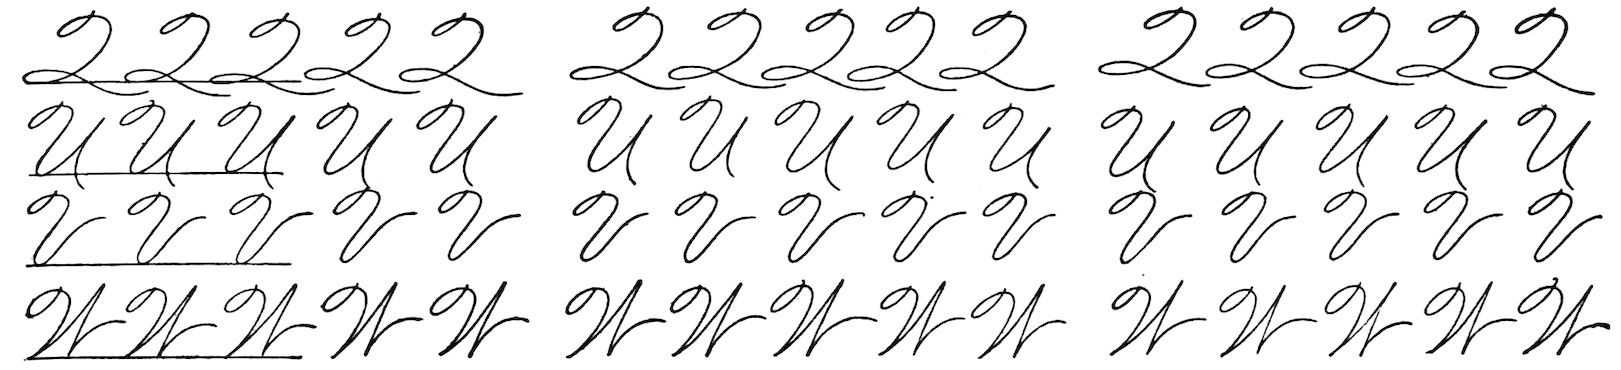 Q Q Q Q Q Q Q Q Q Q Q Q Q Q Q
U U U U U U U U U U U U U U U
V V V V V V V V V V V V V V V
W W W W W W W W W W W W W W W